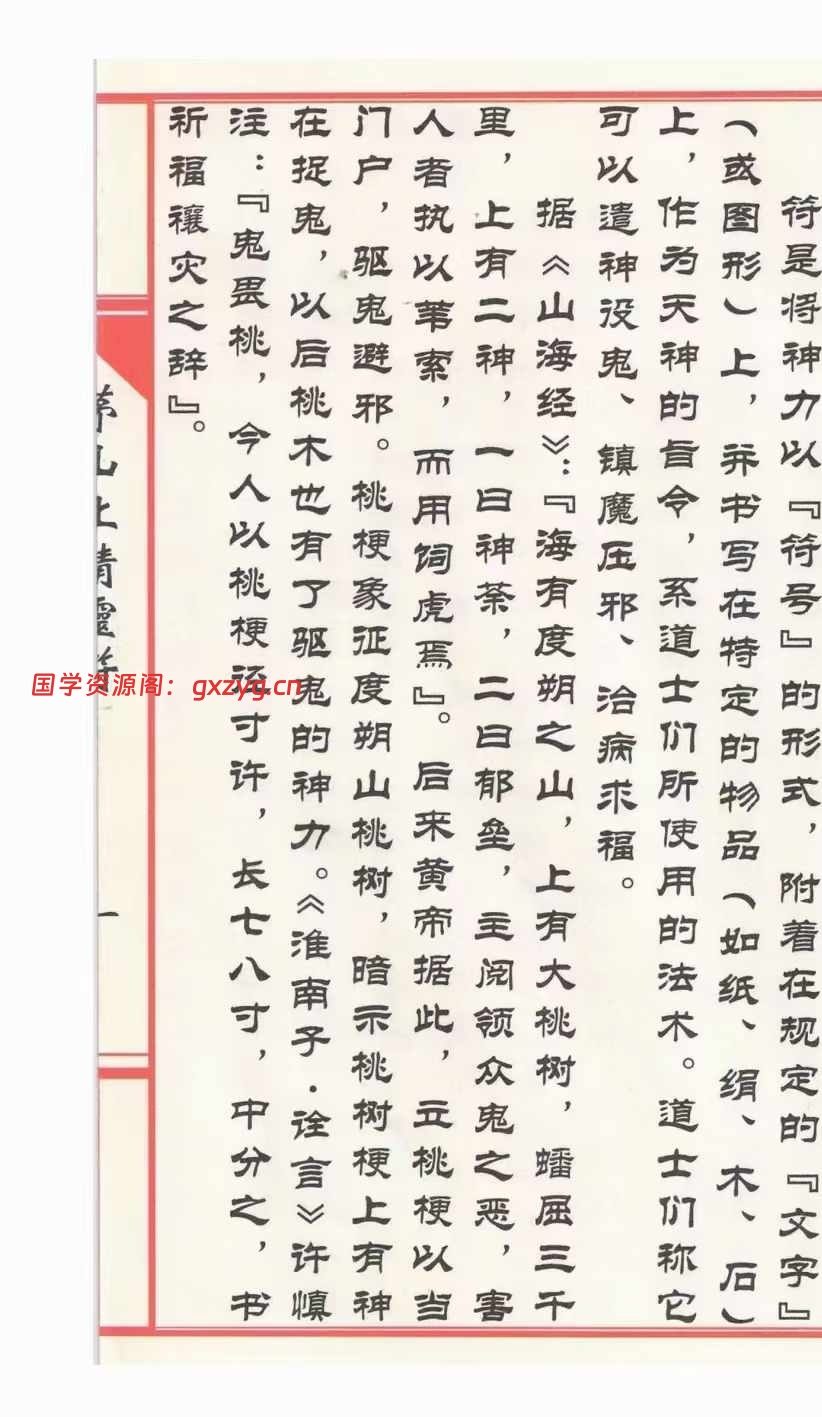 符是将神力以『符号』的形式，附着在规定的『文字』
（或图形）上，并书写在特定的物品（如纸、绢、木、石）
上，作为天神的旨令，系道士们所使用的法术。道士们称它
可以遣神役鬼、镇魔压邪、治病求福。
据《山海经》：『海有度朔之山，上有大桃树，蟠屈三千
里，上有二神，一曰神荼，二曰郁垒，主阅领众鬼之恶，害
人者执以苇索，而用饲虎焉』。后来黄帝据此，立桃梗以当
门户，驱鬼避邪。桃梗象征度朔山桃树，暗示桃树梗上有神
在捉鬼，以后桃木也有了驱鬼的神力。《淮南子·诠言》许慎
注：『鬼畏桃，今人以桃梗径寸许，长七八寸，中分之，书
祈福禳灾之辞』。
上清灵
一
国学资源阁：gxzyg.cn